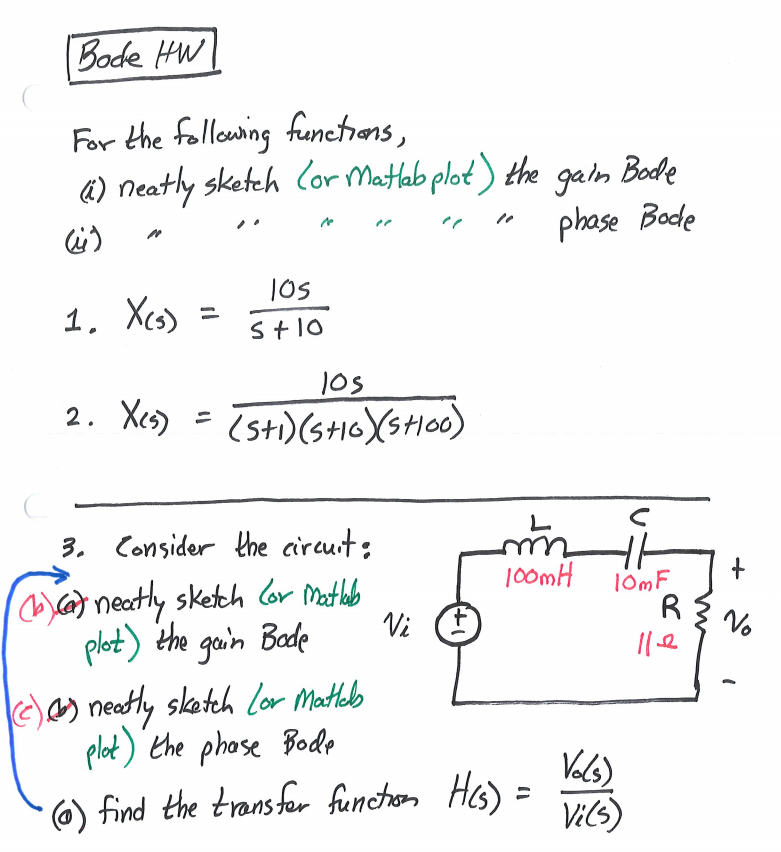 Bode HW
For the following functions,
(i) neatly sketch (or Matlab plot) the gain Bode
(ii) " " " " " " phase Bode
1. X(s) = 10s / s+10
2. X(s) = 10s / (s+1)(s+10)(s+100)
3. Consider the circuit:
(b) (a) neatly sketch (or Matlab
plot) the gain Bode
(c) (b) neatly sketch (or Matlab
plot) the phase Bode
(a) find the transfer function H(s) = Vo(s) / Vi(s)
L
C
100mH
10mF
+
R
Vi
+
-
Vo
11Ω
-